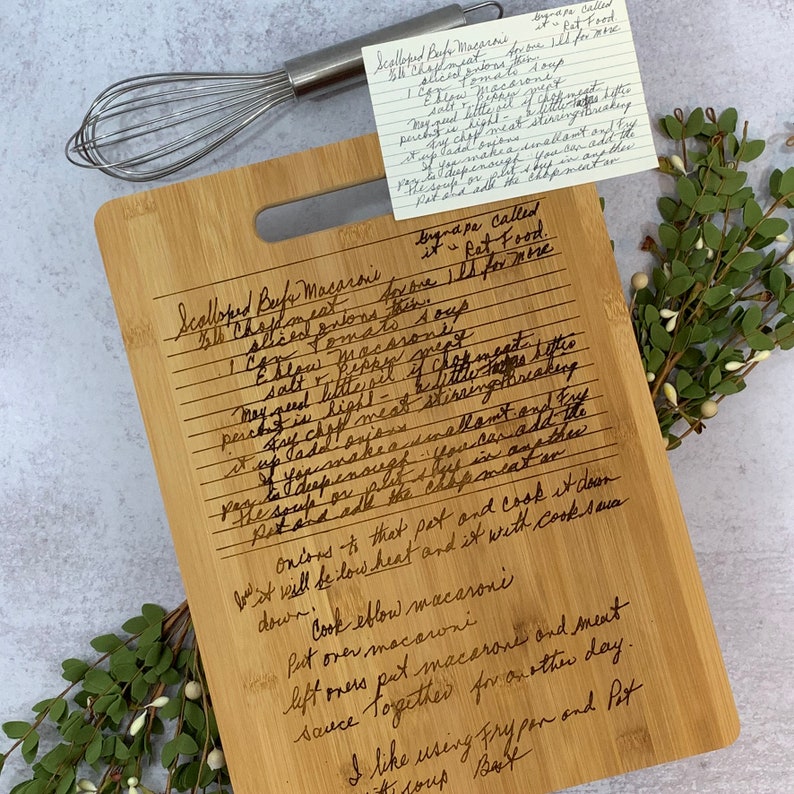 Grandpa called
it " Rat Food.
Scalloped Beefy Macaroni
Chop meat. for one 1 LB for more
sliced onions thin.
1 can Tomato Soup
Eblow Macaroni
salt + Pepper meat
May need little oil if chop meat
percent is hight - a little
Fry chop meat stirring + breaking
it up add onions
If you make a small amt and Fry
pan is deep enough you can add the
the soup or put soup in another
Pot and add the chop meat an
Grandpa called
it " Rat Food.
Scalloped Beefy Macaroni
Chop meat for one 1 LB for more
sliced onions thin.
1 can Tomato Soup
Eblow Macaroni
salt + Pepper meat
May need little oil if chop meat
percent is hight - a little
Fry chop meat stirring + breaking
it up add onions
If you make a small amt and Fry
pan is deep enough you can add the
the soup or put soup in another
Pot and add the chop meat an
onions to that pot and cook it down
low it will be low heat and it with cook sauce
down.
Cook eblow macaroni
Put over macaroni
left overs put macaroni and meat
sauce Together for another day.
I like using Frypan and Pot
soup Best